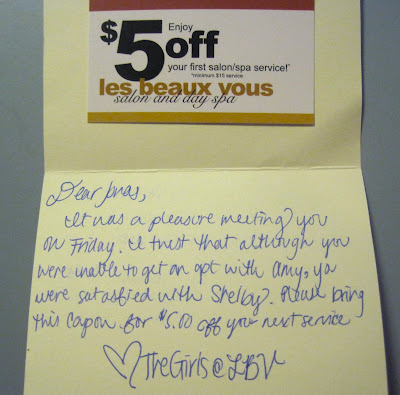 $5 Enjoy
off
your first salon/spa service!*
*minimum $15 service
les beaux vous
salon and day spa
Dear Jonas,
It was a pleasure meeting you
on Friday. I trust that although you
were unable to get an apt with Amy, you
were satasfied with Shelby. Please bring
this Capon for $5.00 off your next service
♡TheGirls@LBV